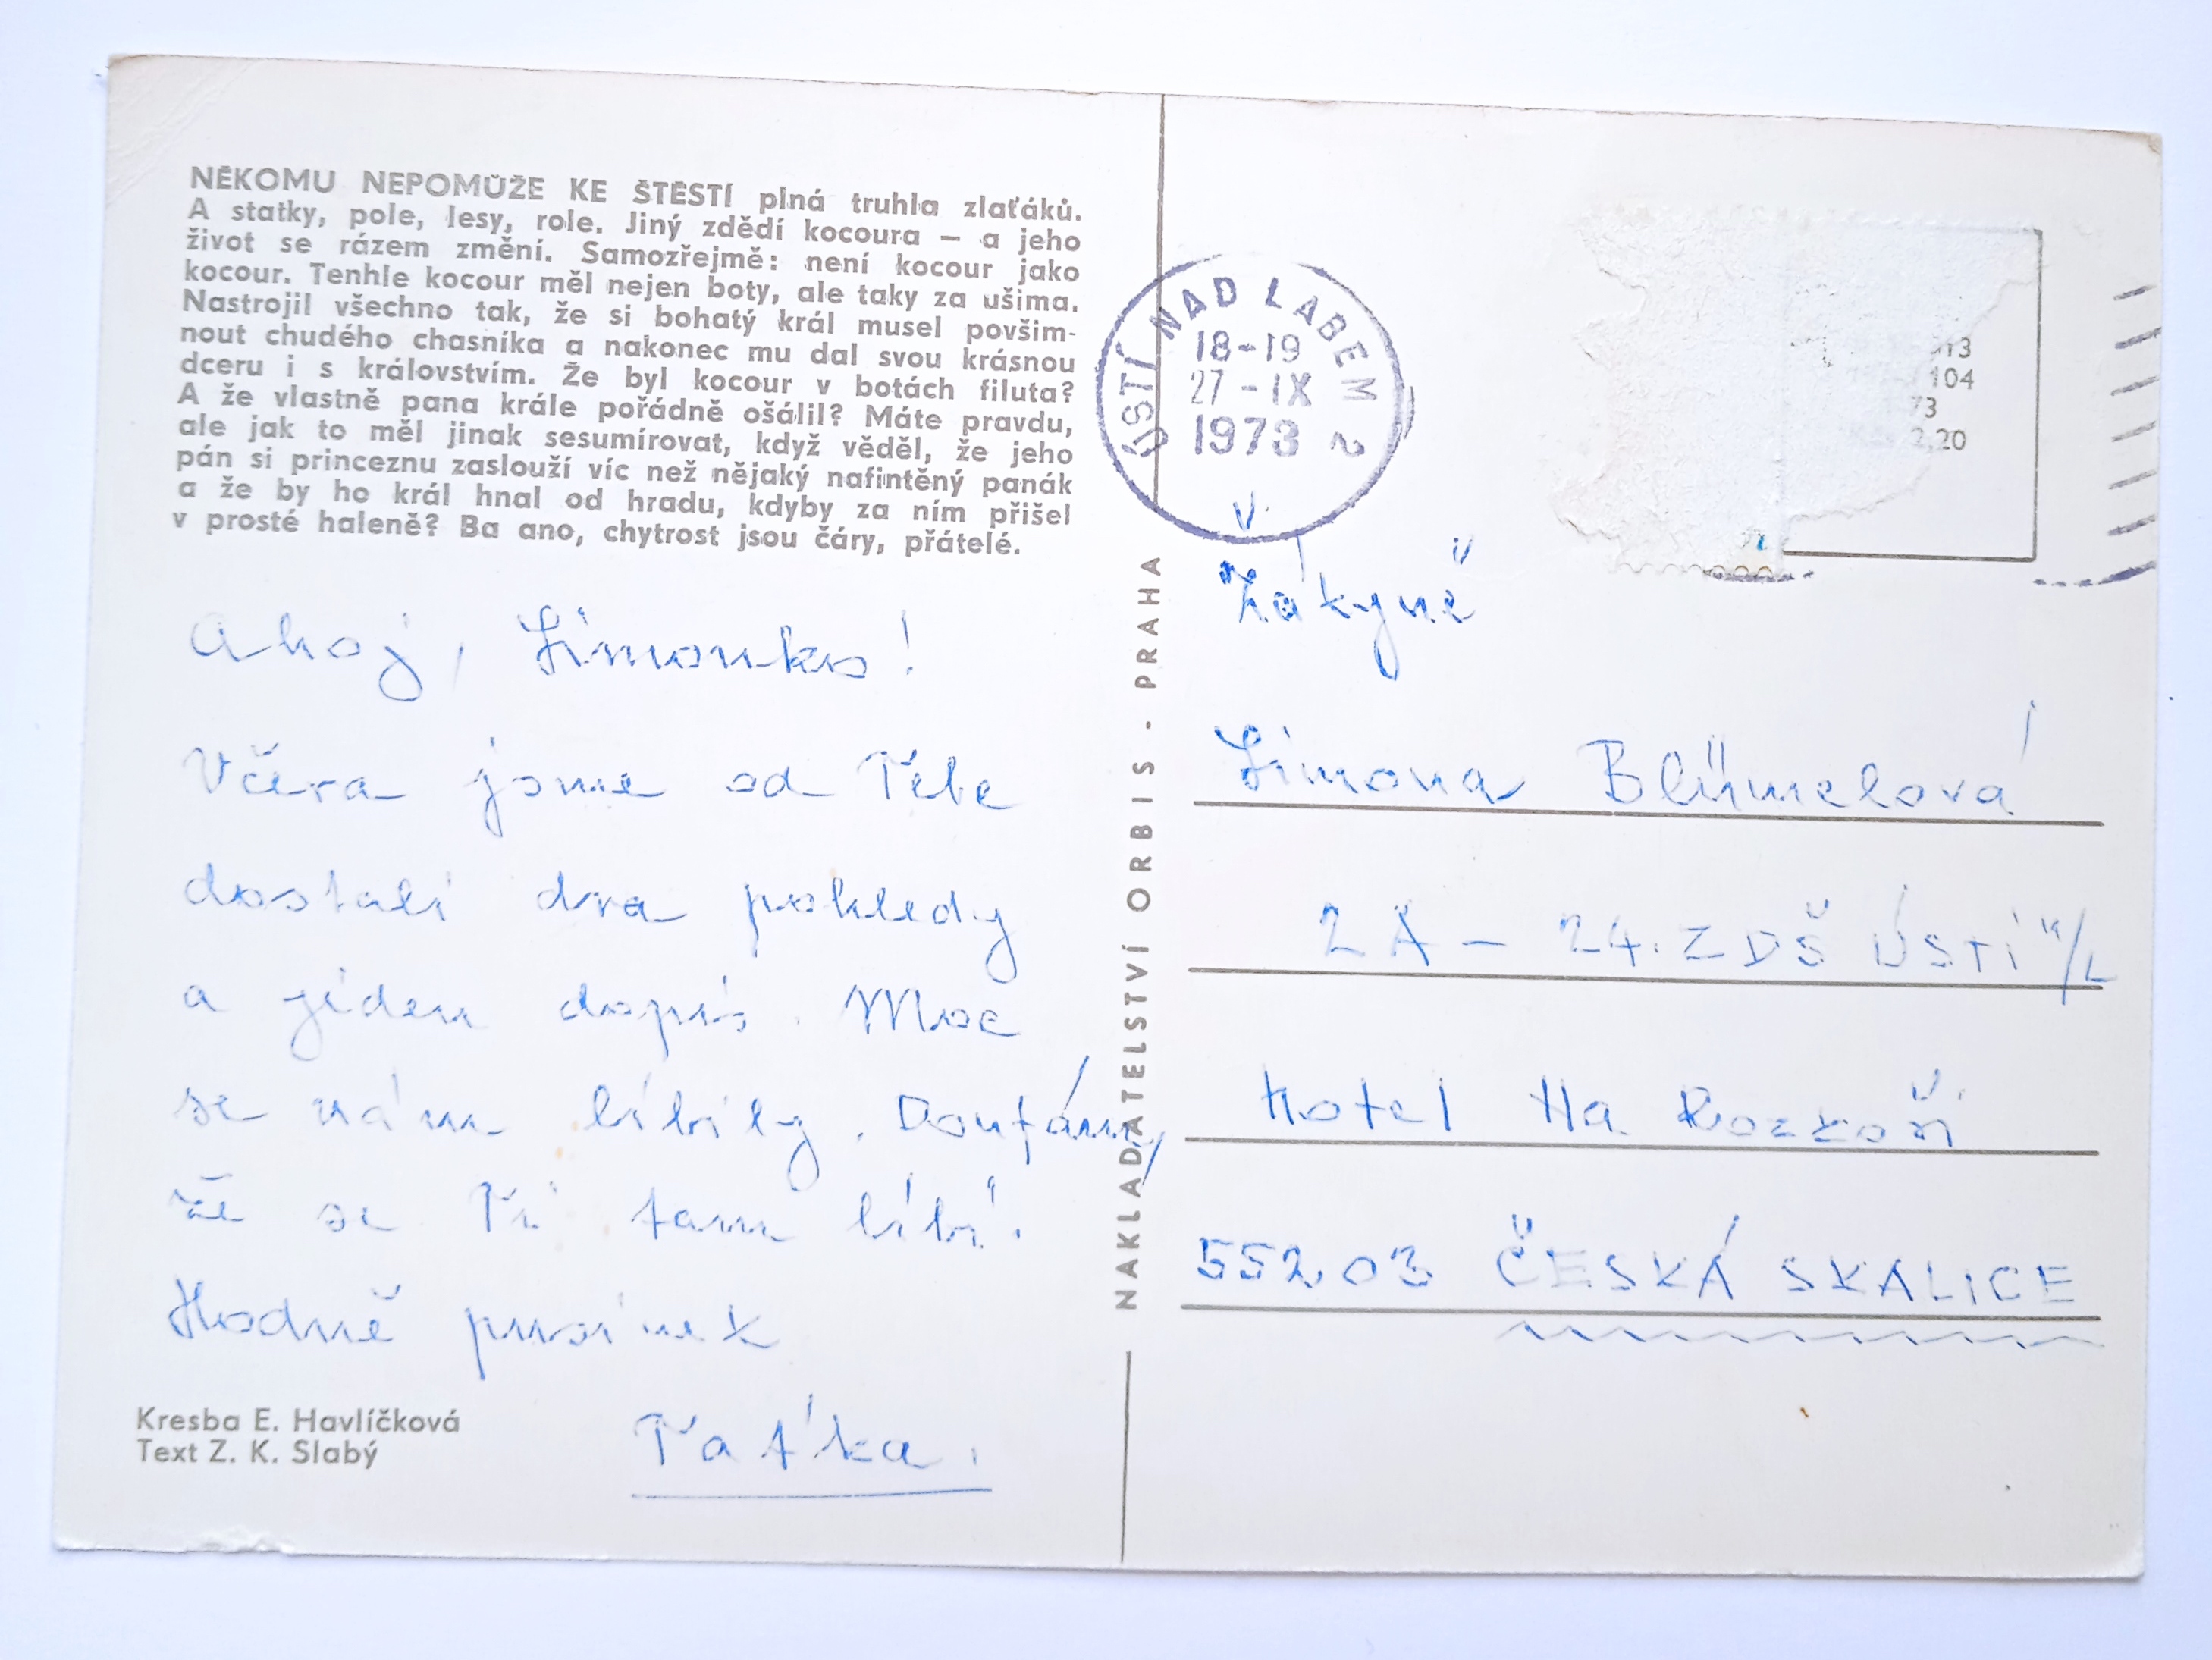 NĚKOMU NEPOMŮŽE KE ŠTĚSTÍ plná truhla zlaťáků.
A statky, pole, lesy, role. Jiný zdědí kocoura — a jeho
život se rázem změní. Samozřejmě: není kocour jako
kocour. Tenhle kocour měl nejen boty, ale taky za ušima.
Nastrojil všechno tak, že si bohatý král musel povšim-
nout chudého chasníka a nakonec mu dal svou krásnou
dceru i s královstvím. Že byl kocour v botách filuta?
A že vlastně pana krále pořádně ošálil? Máte pravdu,
ale jak to měl jinak sesumírovat, když věděl, že jeho
pán si princeznu zaslouží víc než nějaký nafintěný panák
a že by ho král hnal od hradu, kdyby za ním přišel
v prosté haleně? Ba ano, chytrost jsou čáry, přátelé.
Ahoj, Simonko!
Včera jsme od Tebe
dostali dva pohledy
a jeden dopis. Moc
se nám líbily. Doufám,
že se Ti tam líbí.
Hodně pusinek
Taťka.
Kresba E. Havlíčková
Text Z. K. Slabý
NAKLADATELSTVÍ ORBIS - PRAHA
ÚSTÍ NAD LABEM 2
18-19
27-IX
1973
104
73
2,20
Žákyně
Simona Blümelová
2 A - 24. ZDŠ ÚSTÍ n/L
Hotel Na Rozkoši
552 03 ČESKÁ SKALICE